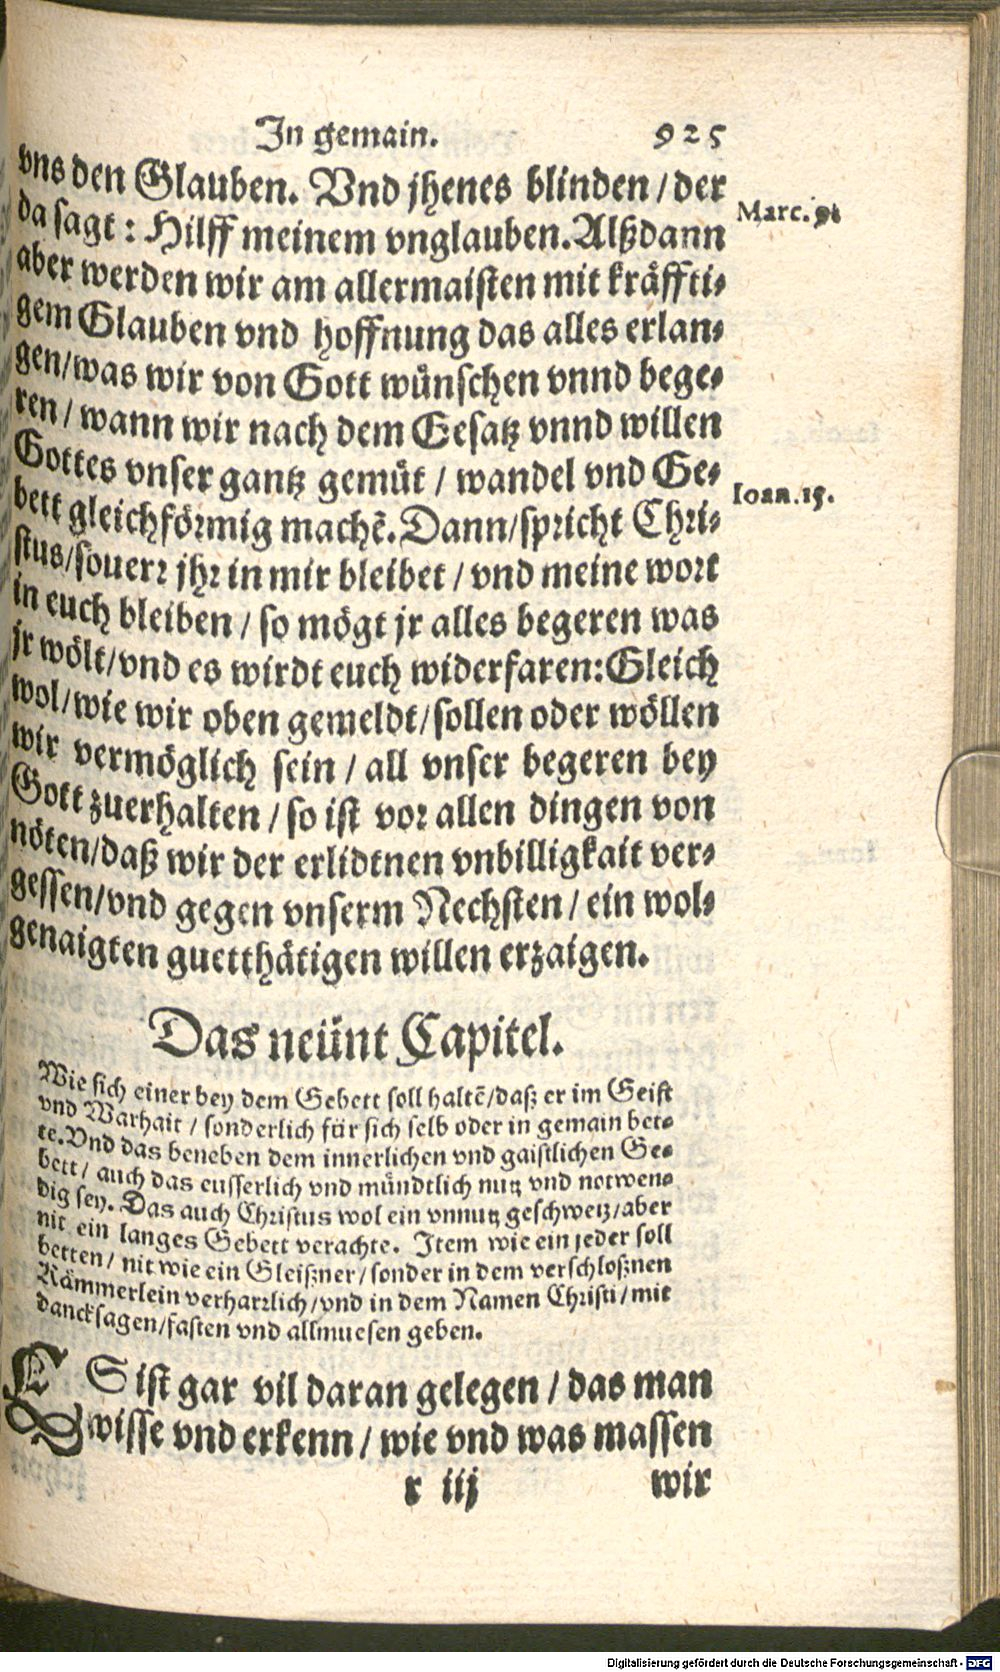 In gemain. 925
vns den Glauben. Vnd jhenes blinden / der
da sagt : Hilff meinem vnglauben. Alßdann
Marc. 9.
aber werden wir am allermaisten mit kräffti⸗
gem Glauben vnd hoffnung das alles erlan⸗
gen/was wir von Gott wünschen vnnd bege⸗
ren / wann wir nach dem Gesatz vnnd willen
Gottes vnser gantz gemüt / wandel vnd Ge⸗
Ioan. 15.
bett gleichförmig machẽ. Dann/spricht Chri⸗
stus/souerr jhr in mir bleibet / vnd meine wort
in euch bleiben / so mögt jr alles begeren was
jr wölt/vnd es wirdt euch widerfaren: Gleich
wol/wie wir oben gemeldt/sollen oder wöllen
wir vermöglich sein / all vnser begeren bey
Gott zuerhalten / so ist vor allen dingen von
nöten/daß wir der erlidtnen vnbilligkait ver⸗
gessen/vnd gegen vnserm Nechsten / ein wol⸗
genaigten guetthätigen willen erzaigen.
Das neünt Capitel.
Wie sich einer bey dem Gebett soll haltẽ/daß er im Geist
vnd Warhait / sonderlich für sich selb oder in gemain bet⸗
te. Vnd das beneben dem innerlichen vnd gaistlichen Ge⸗
bett / auch das eusserlich vnd mündtlich nutz vnd notwen⸗
dig sey. Das auch Christus wol ein vnnutz geschwetz/aber
nit ein langes Gebett verachte. Item wie ein jeder soll
betten / nit wie ein Gleißner / sonder in dem verschloßnen
Kämmerlein verharrlich/vnd in dem Namen Christi/mit
dancksagen/fasten vnd allmuesen geben.
ES ist gar vil daran gelegen / das man
wisse vnd erkenn / wie vnd was massen
r iij wir
Digitalisierung gefördert durch die Deutsche Forschungsgemeinschaft - DFG